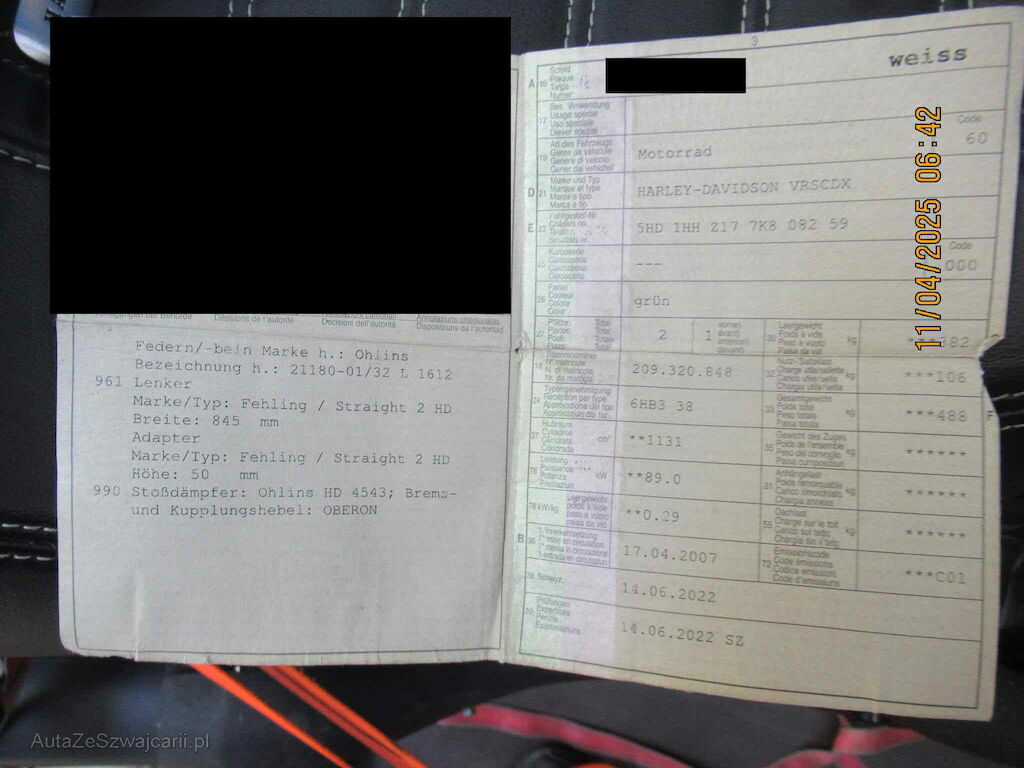 3
weiss
A 15 Schild
Plaque
Targa
Numer
17 Bes. Verwendung
Usago spécial
Uso speciale
Diever spezial
Code
60
19 Art des Fahrzeugs
Genre de véhicule
Genere di veicolo
Gener dal vehichel
Motorrad
D 21 Marke und Typ
Marque et type
Marca e tipo
Marca e tip
HARLEY-DAVIDSON VRSCDX
E 23 Fahrgestell-Nr.
Châssis no
Telaio
Schassis nr.
5HD 1HH Z17 7K8 082 59
25 Karosserie
Carrosserie
Carrozzeria
Carossaria
---
Code
000
26 Farbe
Couleur
Colore
Color
grün
27 Plätze: Total
Places: Total
Posti: Totale
Plazs: Total
2
( 1 vorne)
avant)
anteriori)
davant)
30 Leergewicht
Poids à vide
Peso a vuoto
Paisa da vid
kg
***382
18 Stammnummer
N° matricule
N. di matricola
Nr. da matricla
209.320.848
32 Nutz-/Sattellast
Charge utile/sellette
Carico utile/sella
Chargia utila/sella
kg
***106
24 Typengenehmigung
Réception par type
Approvazione del tipo
Approvaziun dal tip
6HB3 38
33 Gesamtgewicht
Poids total
Peso totale
Paisa totala
kg
***488
F
37 Hubraum
Cylindrée
Cilindrata
Cilindrada
cm³
**1131
35 Gewicht des Zuges
Poids de l'ensemble
Peso del convoglio
Paisa cumposiziun
kg
******
76 Leistung
Puissance
Potenza
Prestaziun
kW
**89.0
31 Anhängelast
Poids remorquable
Carico rimorchiato
Chargia annexa
kg
******
78 kW/kg
Leergewicht
poids à vide
peso a vuoto
paisa da vid
**0.29
55 Dachlast
Charge sur le toit
Carico sul tetto
Chargia sin il tetg
kg
******
B 36 1. Inverkehrsetzung
1re mise en circulation
1a messa in circolazione
1. entrada en circulaziun
17.04.2007
72 Emissionscode
Code émissions
Codice emissioni
Code d'emissiuns
***C01
38 Schwyz,
14.06.2022
39 Prüfungen
Expertises
Perizie
Examinaziuns
14.06.2022 SZ
Verfügungen der Behörde
Décisions de l'autorité
Annotazioni cantonali
Decisioni dell'autorità
Annotaziuns chantunalas
Disposiziuns da l'autoritad
Federn/-bein Marke h.: Ohlins
Bezeichnung h.: 21180-01/32 L 1612
961 Lenker
Marke/Typ: Fehling / Straight 2 HD
Breite: 845 mm
Adapter
Marke/Typ: Fehling / Straight 2 HD
Höhe: 50 mm
990 Stoßdämpfer: Ohlins HD 4543; Brems-
und Kupplungshebel: OBERON
11/04/2025 06:42
AutaZeSzwajcarii.pl